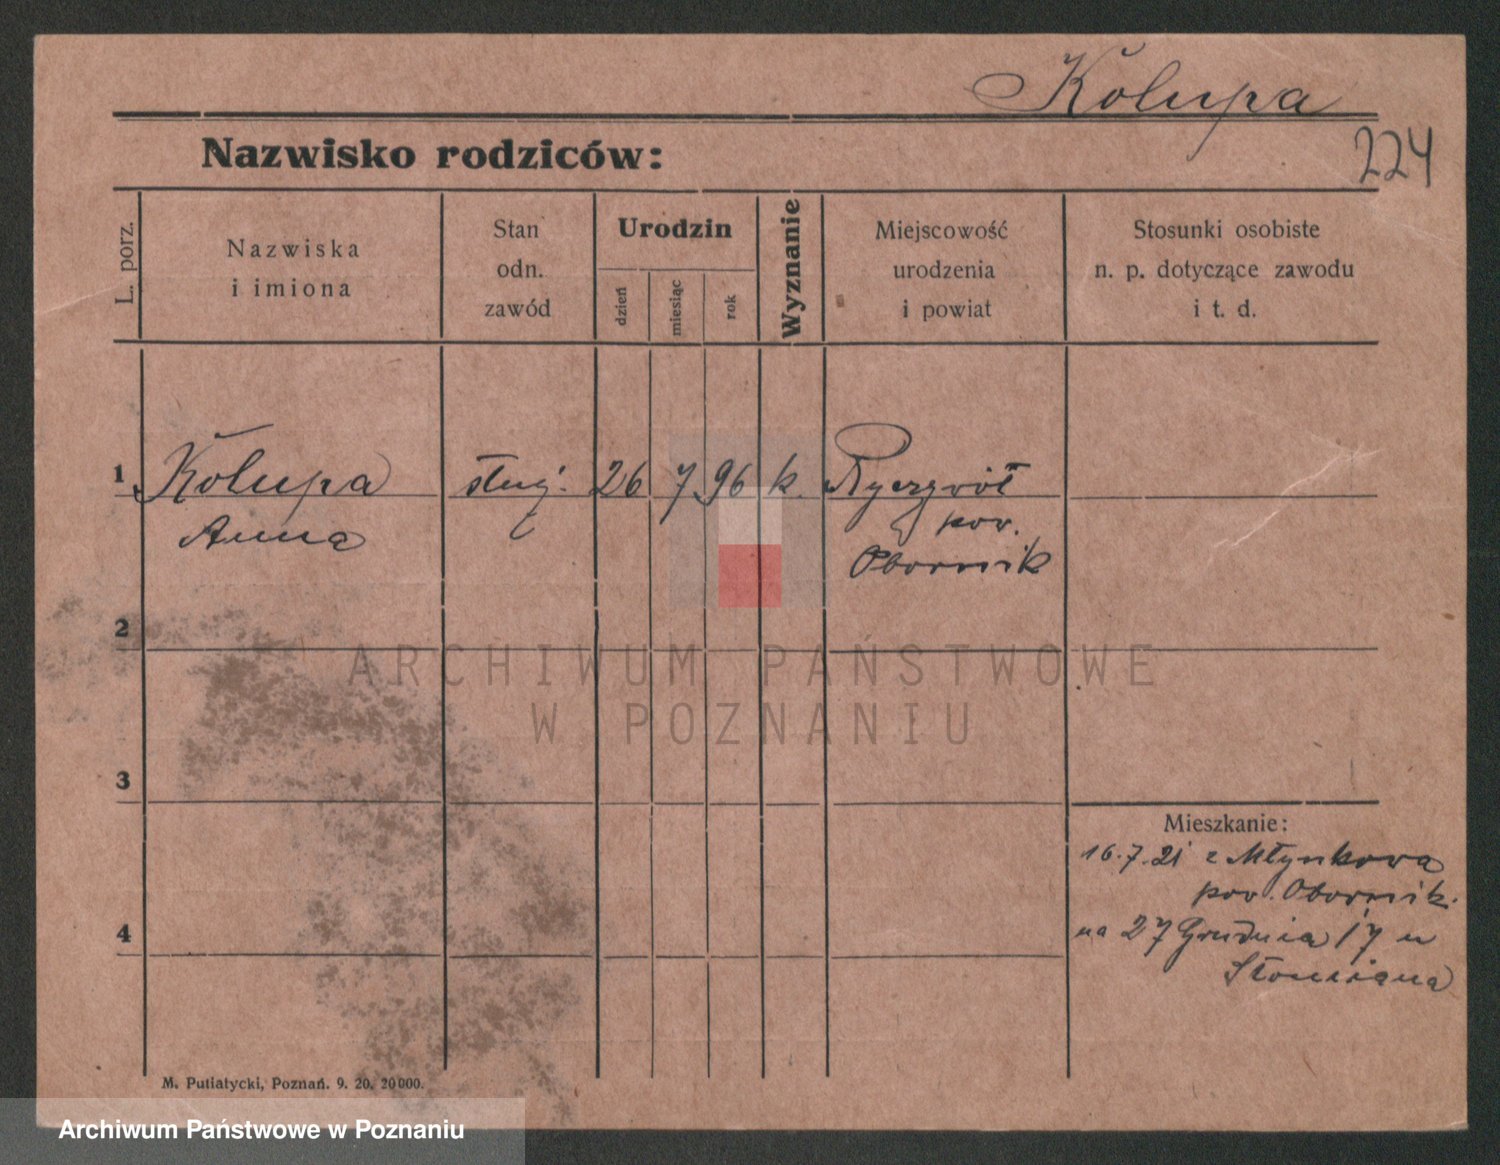 Kołupa
224
Nazwisko rodziców:
L. porz.
Nazwiska
i imiona
Stan
odn.
zawód
Urodzin
dzień
miesiąc
rok
Wyznanie
Miejscowość
urodzenia
i powiat
Stosunki osobiste
n. p. dotyczące zawodu
i t. d.
1 Kołupa służ. 26 7 96 k. Ryczywół
Anna pow.
Obornik
2
ARCHIWUM PAŃSTWOWE
W POZNANIU
3
Mieszkanie:
16.7.21 z Młynkowa
pow. Obornik.
4
na 27 Grudnia 17 u
M. Putiatycki, Poznań. 9. 20. 20000.
Archiwum Państwowe w Poznaniu